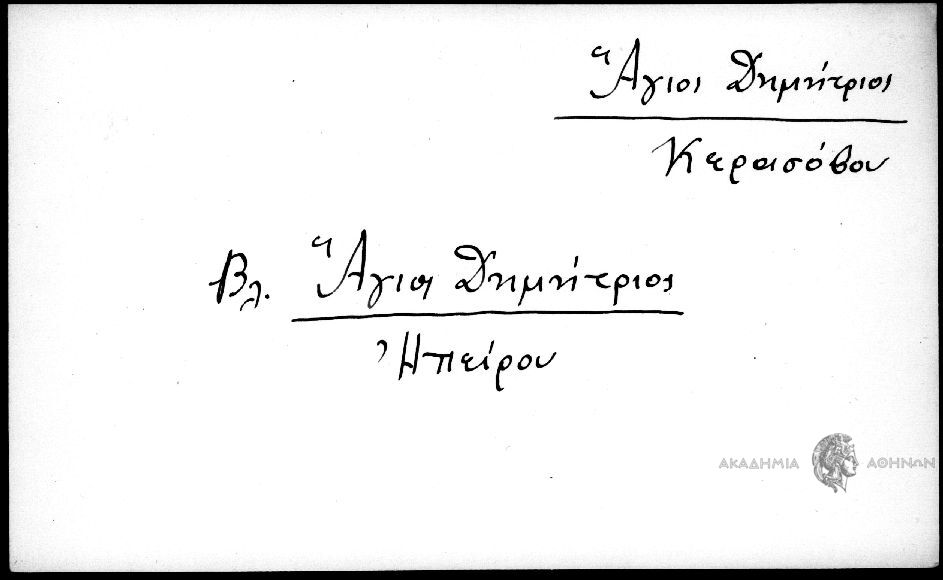 Ἅγιος Δημήτριος
Κερασόβου
Βλ. Ἅγιος Δημήτριος
Ἠπείρου
ΑΚΑΔΗΜΙΑ ΑΘΗΝΩΝ